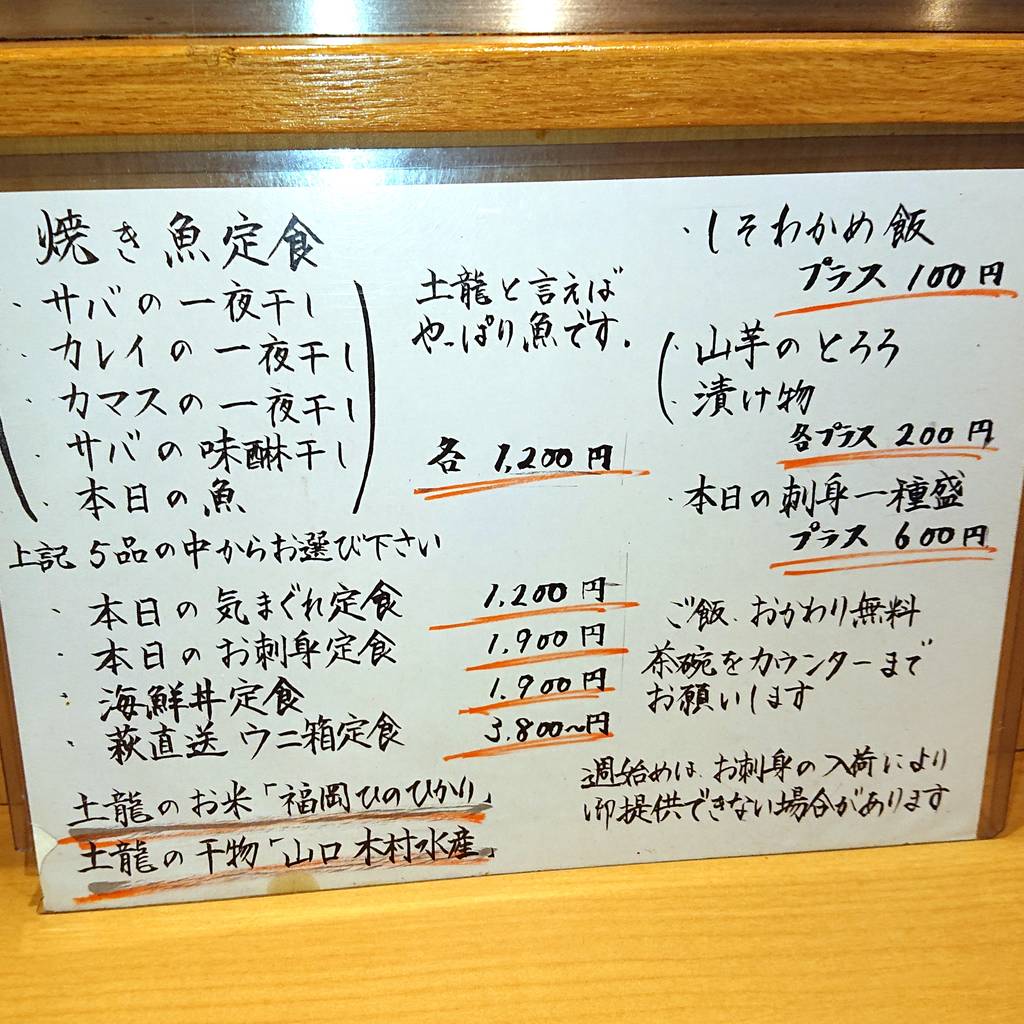 焼き魚定食
・サバの一夜干し
・カレイの一夜干し
・カマスの一夜干し
・サバの味醂干し
・本日の魚
土龍と言えば
やっぱり魚です。
各 1,200円
上記5品の中からお選び下さい
・本日の気まぐれ定食 1,200円
・本日のお刺身定食 1,900円
・海鮮丼定食 1,900円
・萩直送 ウニ箱定食 3,800〜円
土龍のお米「福岡ひのひかり」
土龍の干物「山口 木村水産」
・しそわかめ飯
プラス 100円
・山芋のとろろ
・漬け物
各プラス 200円
・本日の刺身一種盛
プラス 600円
ご飯、おかわり無料
茶碗をカウンターまで
お願いします
週始めは、お刺身の入荷により
御提供できない場合があります